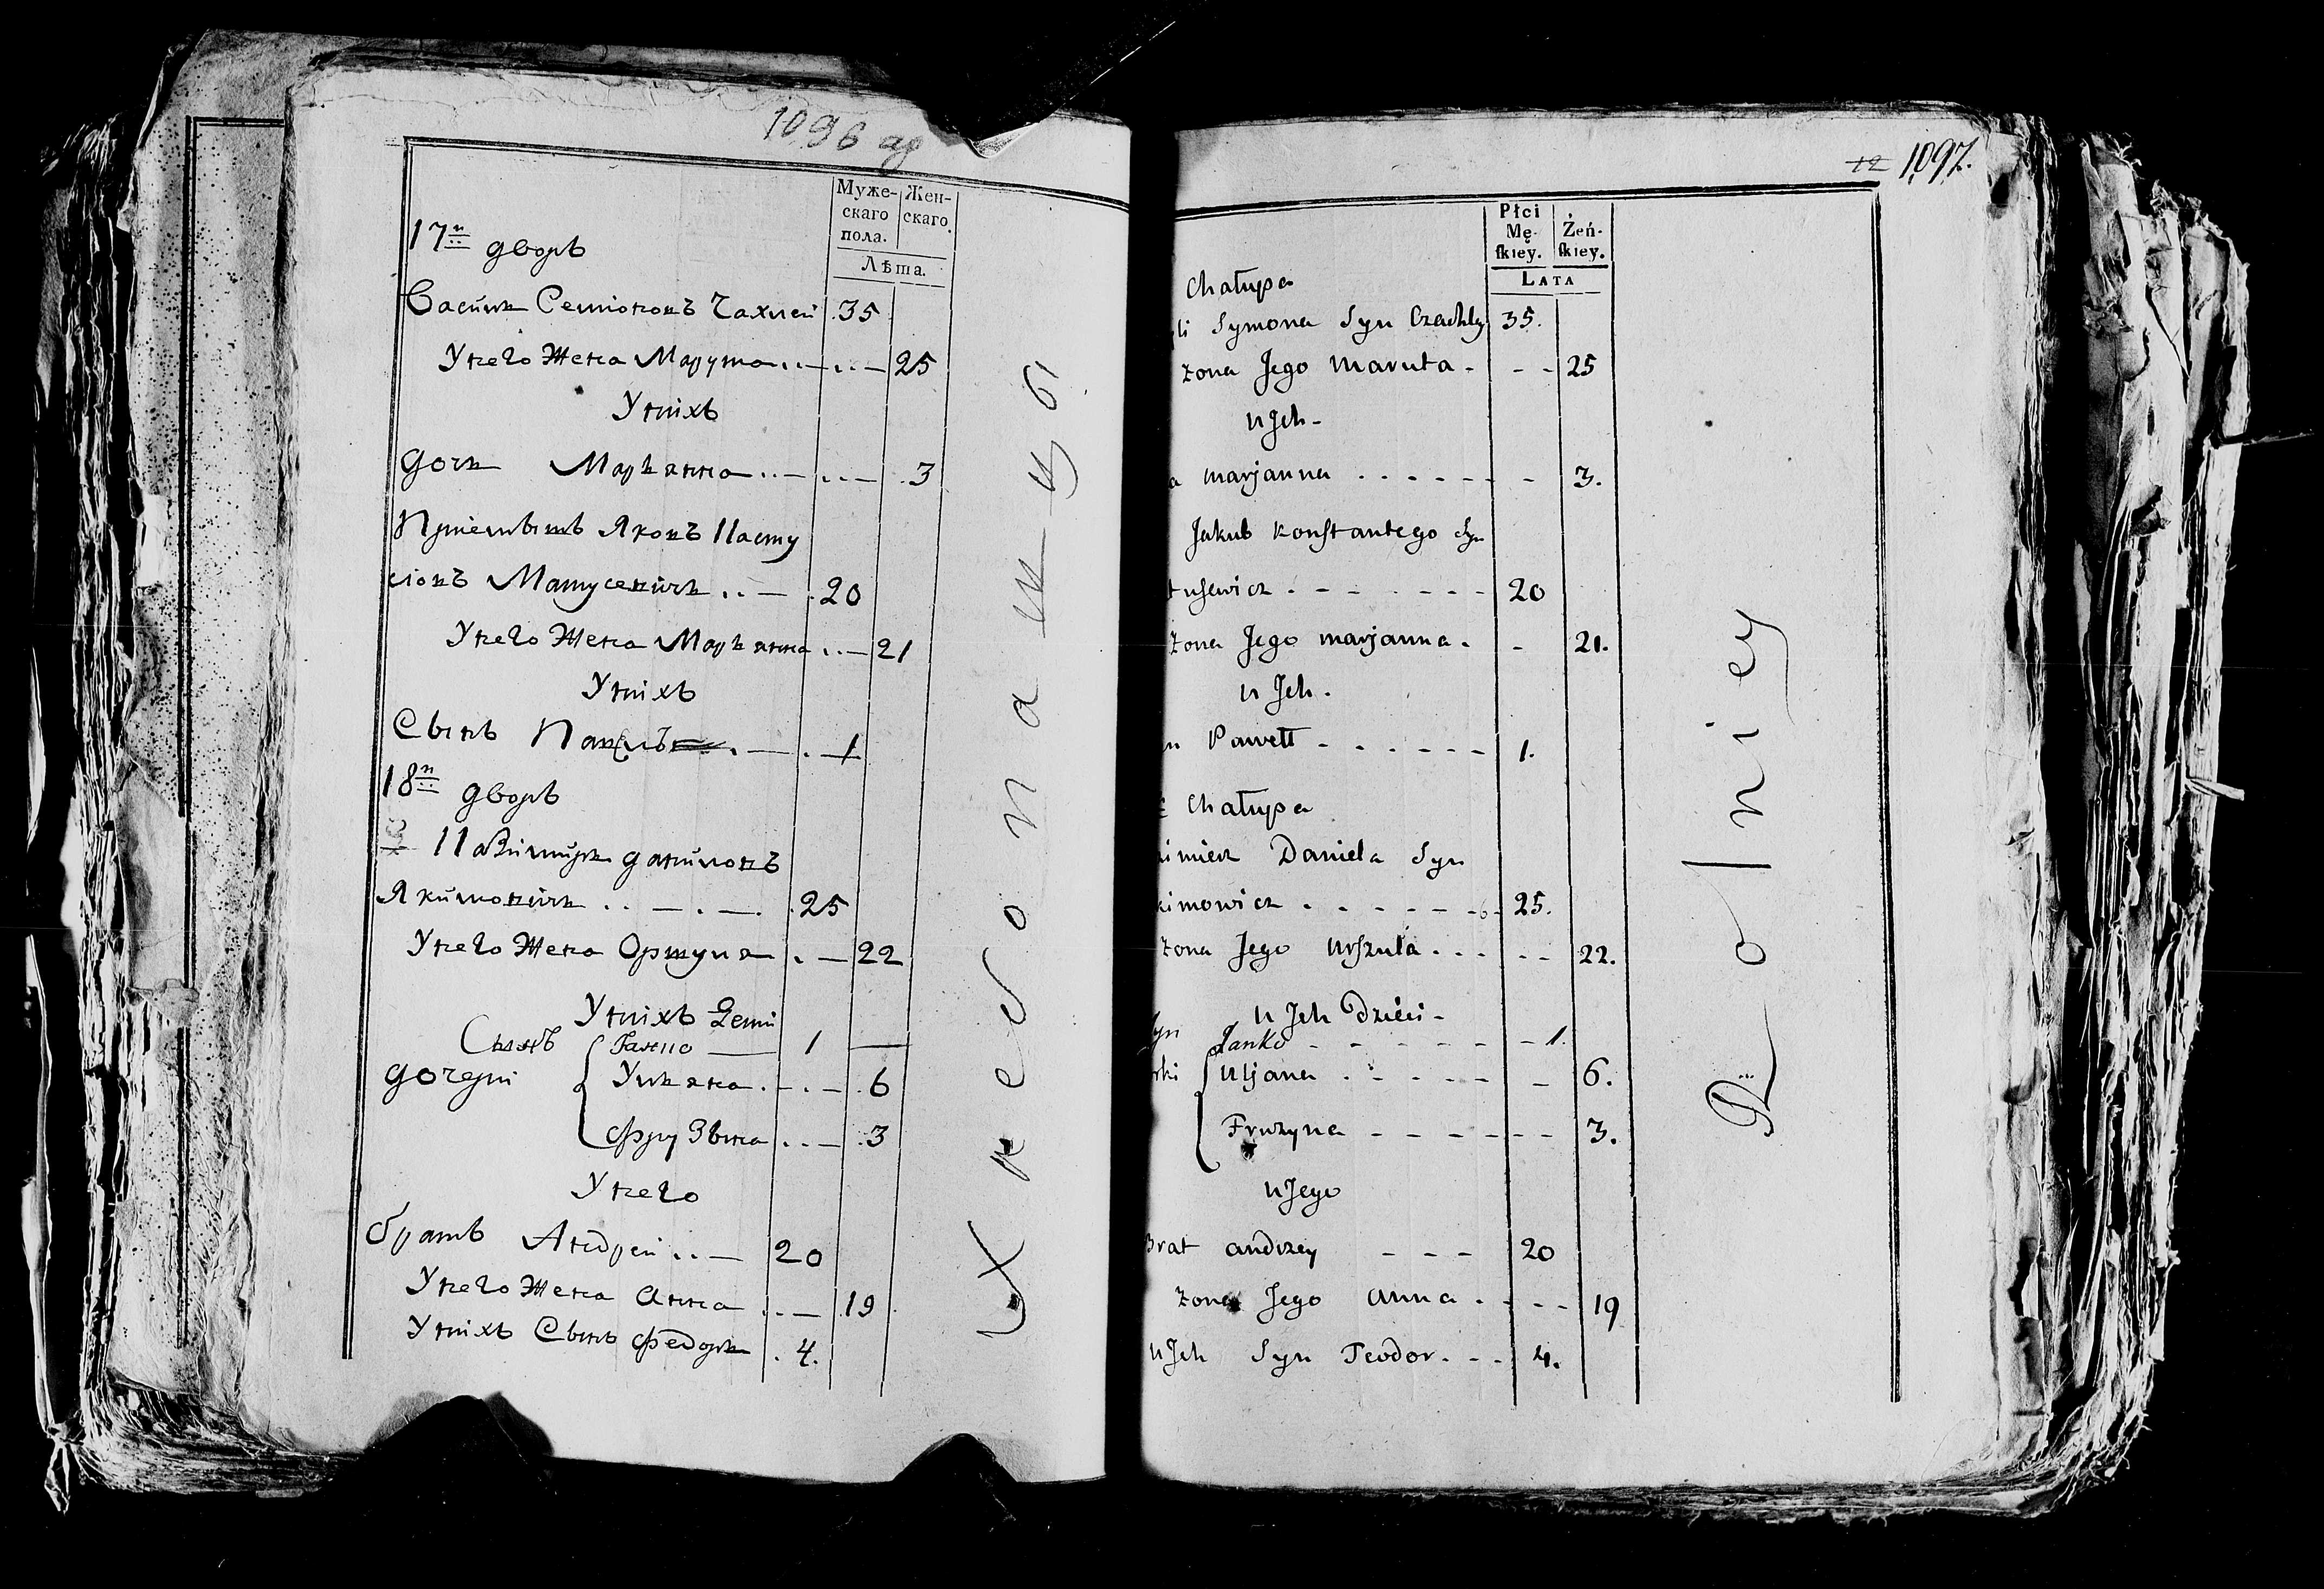 1096 ар
Муже-
скаго
пола.
Жен-
скаго.
Лѣта.
17й дворъ
Василь Семіоновъ Чахлей 35
У него Жена Марута 25
У нихъ
дочь Марьянна 3
Пріемышъ Яковъ Касту
сіовъ Матусевичь 20
У него Жена Марьянна 21
У нихъ
Сынъ Павелъ 1
18й дворъ
Казимиръ даниловъ
Якимовичь 25
У него Жена Оршуля 22
У нихъ Дети
Сынъ Ганно 1
дочери Ульяна 6
Фрузына 3
У него
братъ Андрей 20
У него Жена Анна 19
У нихъ Сынъ Федоръ 4.
12 1097.
Płci
Mę-
ſkiey.
Żeń-
ſkiey.
LATA
Chałupa
li Symona Syn Czachley 35.
Żona Jego Maruta 25
u Jch
a Marjanna 3.
Jakub Konstantego Syn
tusewicz 20
Żona Jego Marjanna 21.
u Jch.
n Pawełł 1.
Chałupa
imierz Daniela Syn
kimowicz 25.
Żona Jego Urszula 22.
u Jch Dzieci
yn Janko 1.
rki Uljana 6.
Fruzyna 3.
u Jego
Brat Andrzey 20
Żona Jego Anna 19
u Jch Syn Teodor 4.
Dolniey